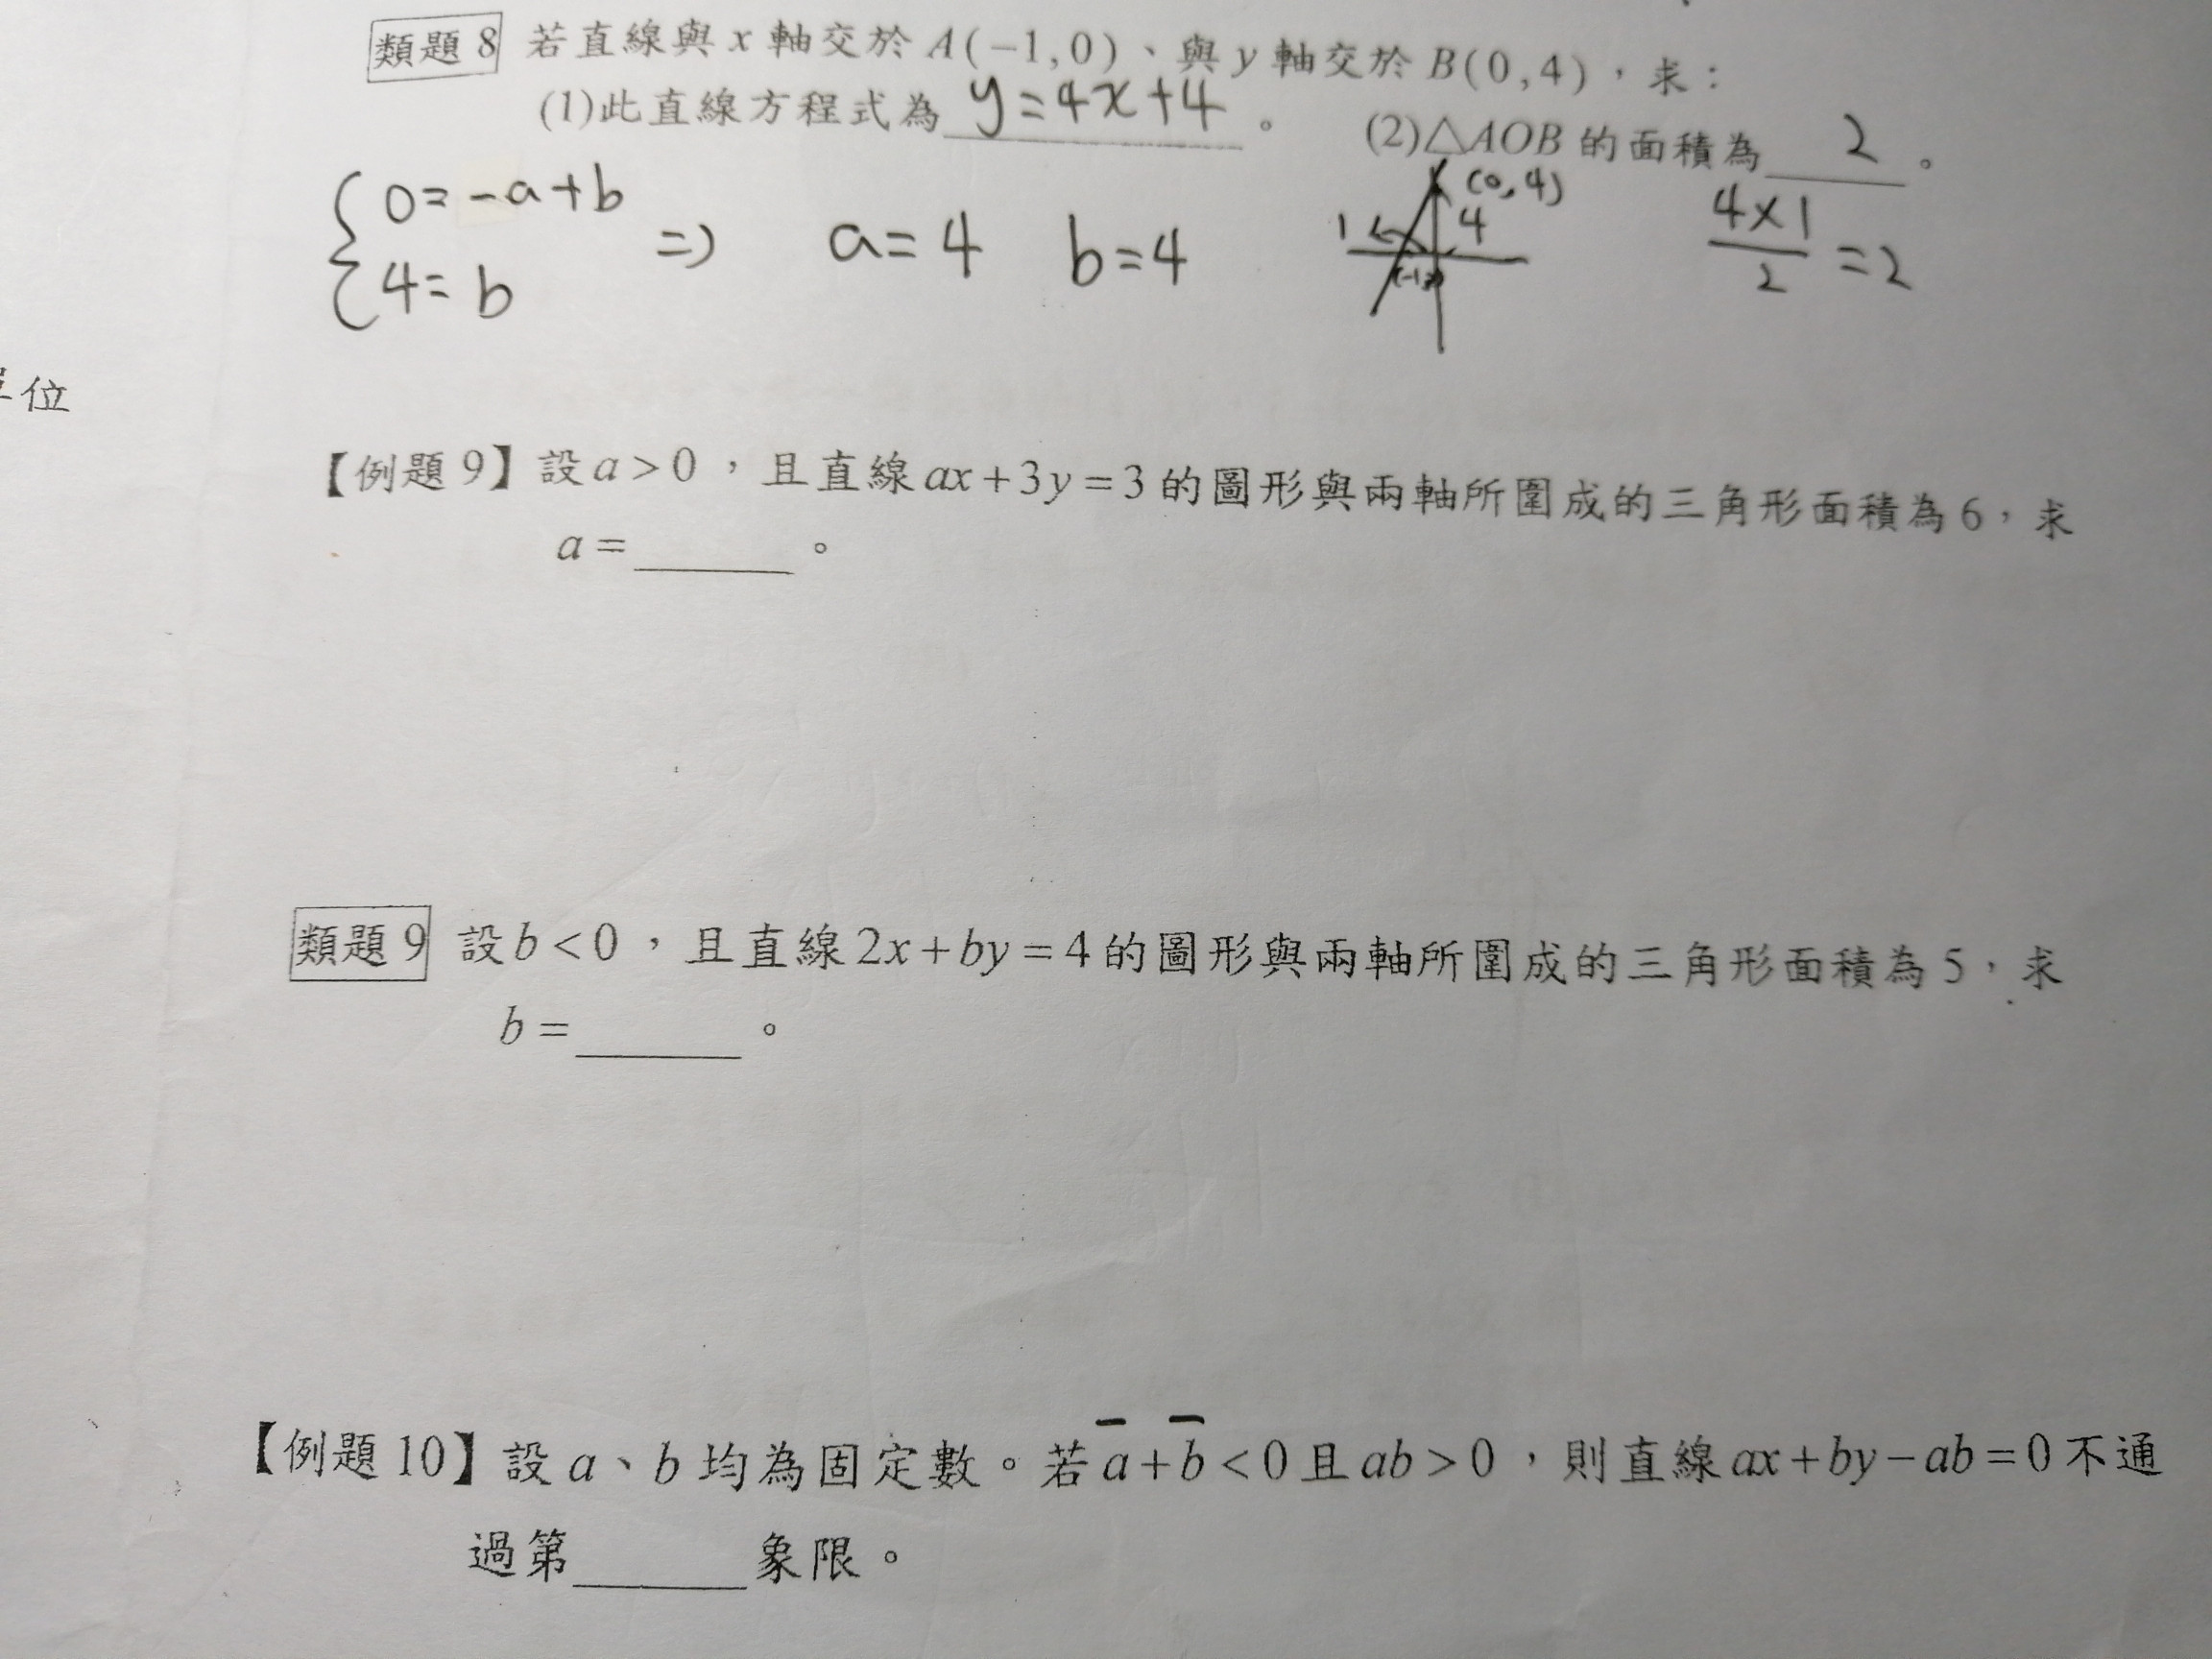 類題8 若直線與 x 軸交於 A(−1,0)、與 y 軸交於 B(0,4),求:
(1)此直線方程式為 y=4x+4 。 (2)△AOB 的面積為 2 。
0=-a+b
4=b
⇒ a=4 b=4
(0,4)
1 4
4×1
2
=2
位
【例題9】設 a>0,且直線 ax+3y=3 的圖形與兩軸所圍成的三角形面積為 6,求
a=______。
類題9 設 b<0,且直線 2x+by=4 的圖形與兩軸所圍成的三角形面積為 5,求
b=______。
【例題10】設 a、b 均為固定數。若 a+b<0 且 ab>0,則直線 ax+by−ab=0 不通
過第______象限。